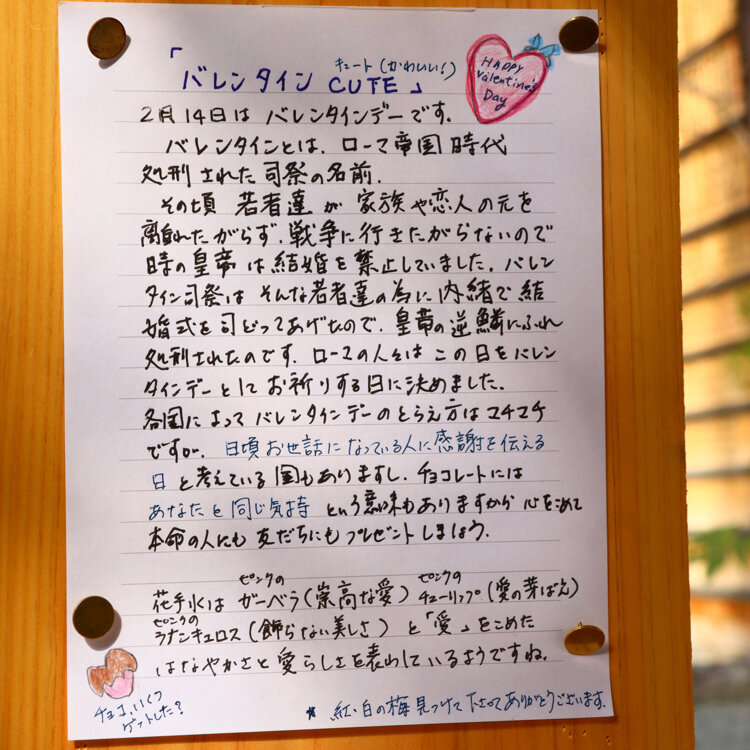 キュート(かわいい!)
「バレンタイン CUTE」
HAPPY
Valentine's
Day
2月14日は バレンタインデーです。
バレンタインとは、ローマ帝国時代
処刑された司祭の名前.
その頃 若者達が 家族や恋人の元を
離れたがらず、戦争に行きたがらないので
時の皇帝は結婚を禁止していました。バレン
タイン司祭は そんな若者達の為に内緒で結
婚式を司どってあげたので、皇帝の逆鱗にふれ
処刑されたのです。ローマの人々は この日をバレン
タインデーとして お祈りする日に決めました。
各国によって バレンタインデーのとらえ方は マチマチ
ですが、日頃お世話になっている人に感謝を伝える
日 と考えている 国もありますし、チョコレートには
あなたと同じ気持 という意味もありますから 心をこめて
本命の人にも 友だちにも プレゼント しましょう。
ピンクの ピンクの
花手水は ガーベラ(崇高な愛) チューリップ(愛の芽ばえ)
ピンクの
ラナンキュロス(飾らない美しさ) と「愛」をこめた
はなやかさと 愛らしさを表わしているようですね。
チョコ、いくつ
ゲットした?
★ 紅・白の梅見つけて下さってありがとうございます.